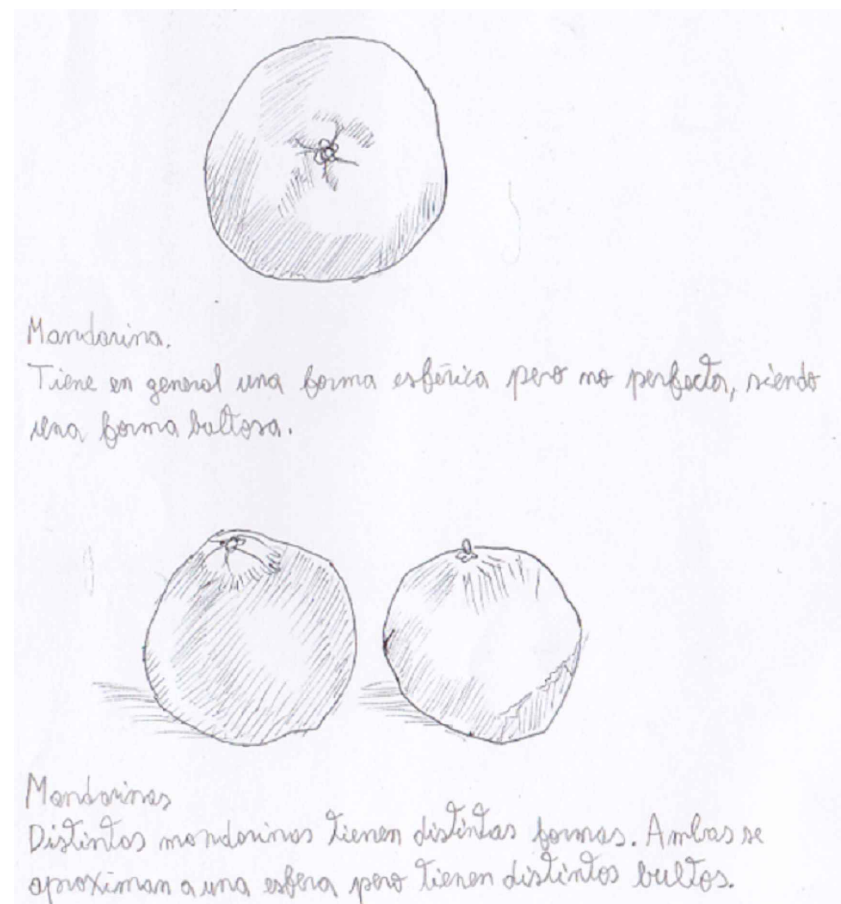 Mandarina.
Tiene en general una forma esférica pero no perfecta, siendo
una forma bultosa.
Mandarinas
Distintas mandarinas tienen distintas formas. Ambas se
aproximan a una esfera pero tienen distintos bultos.